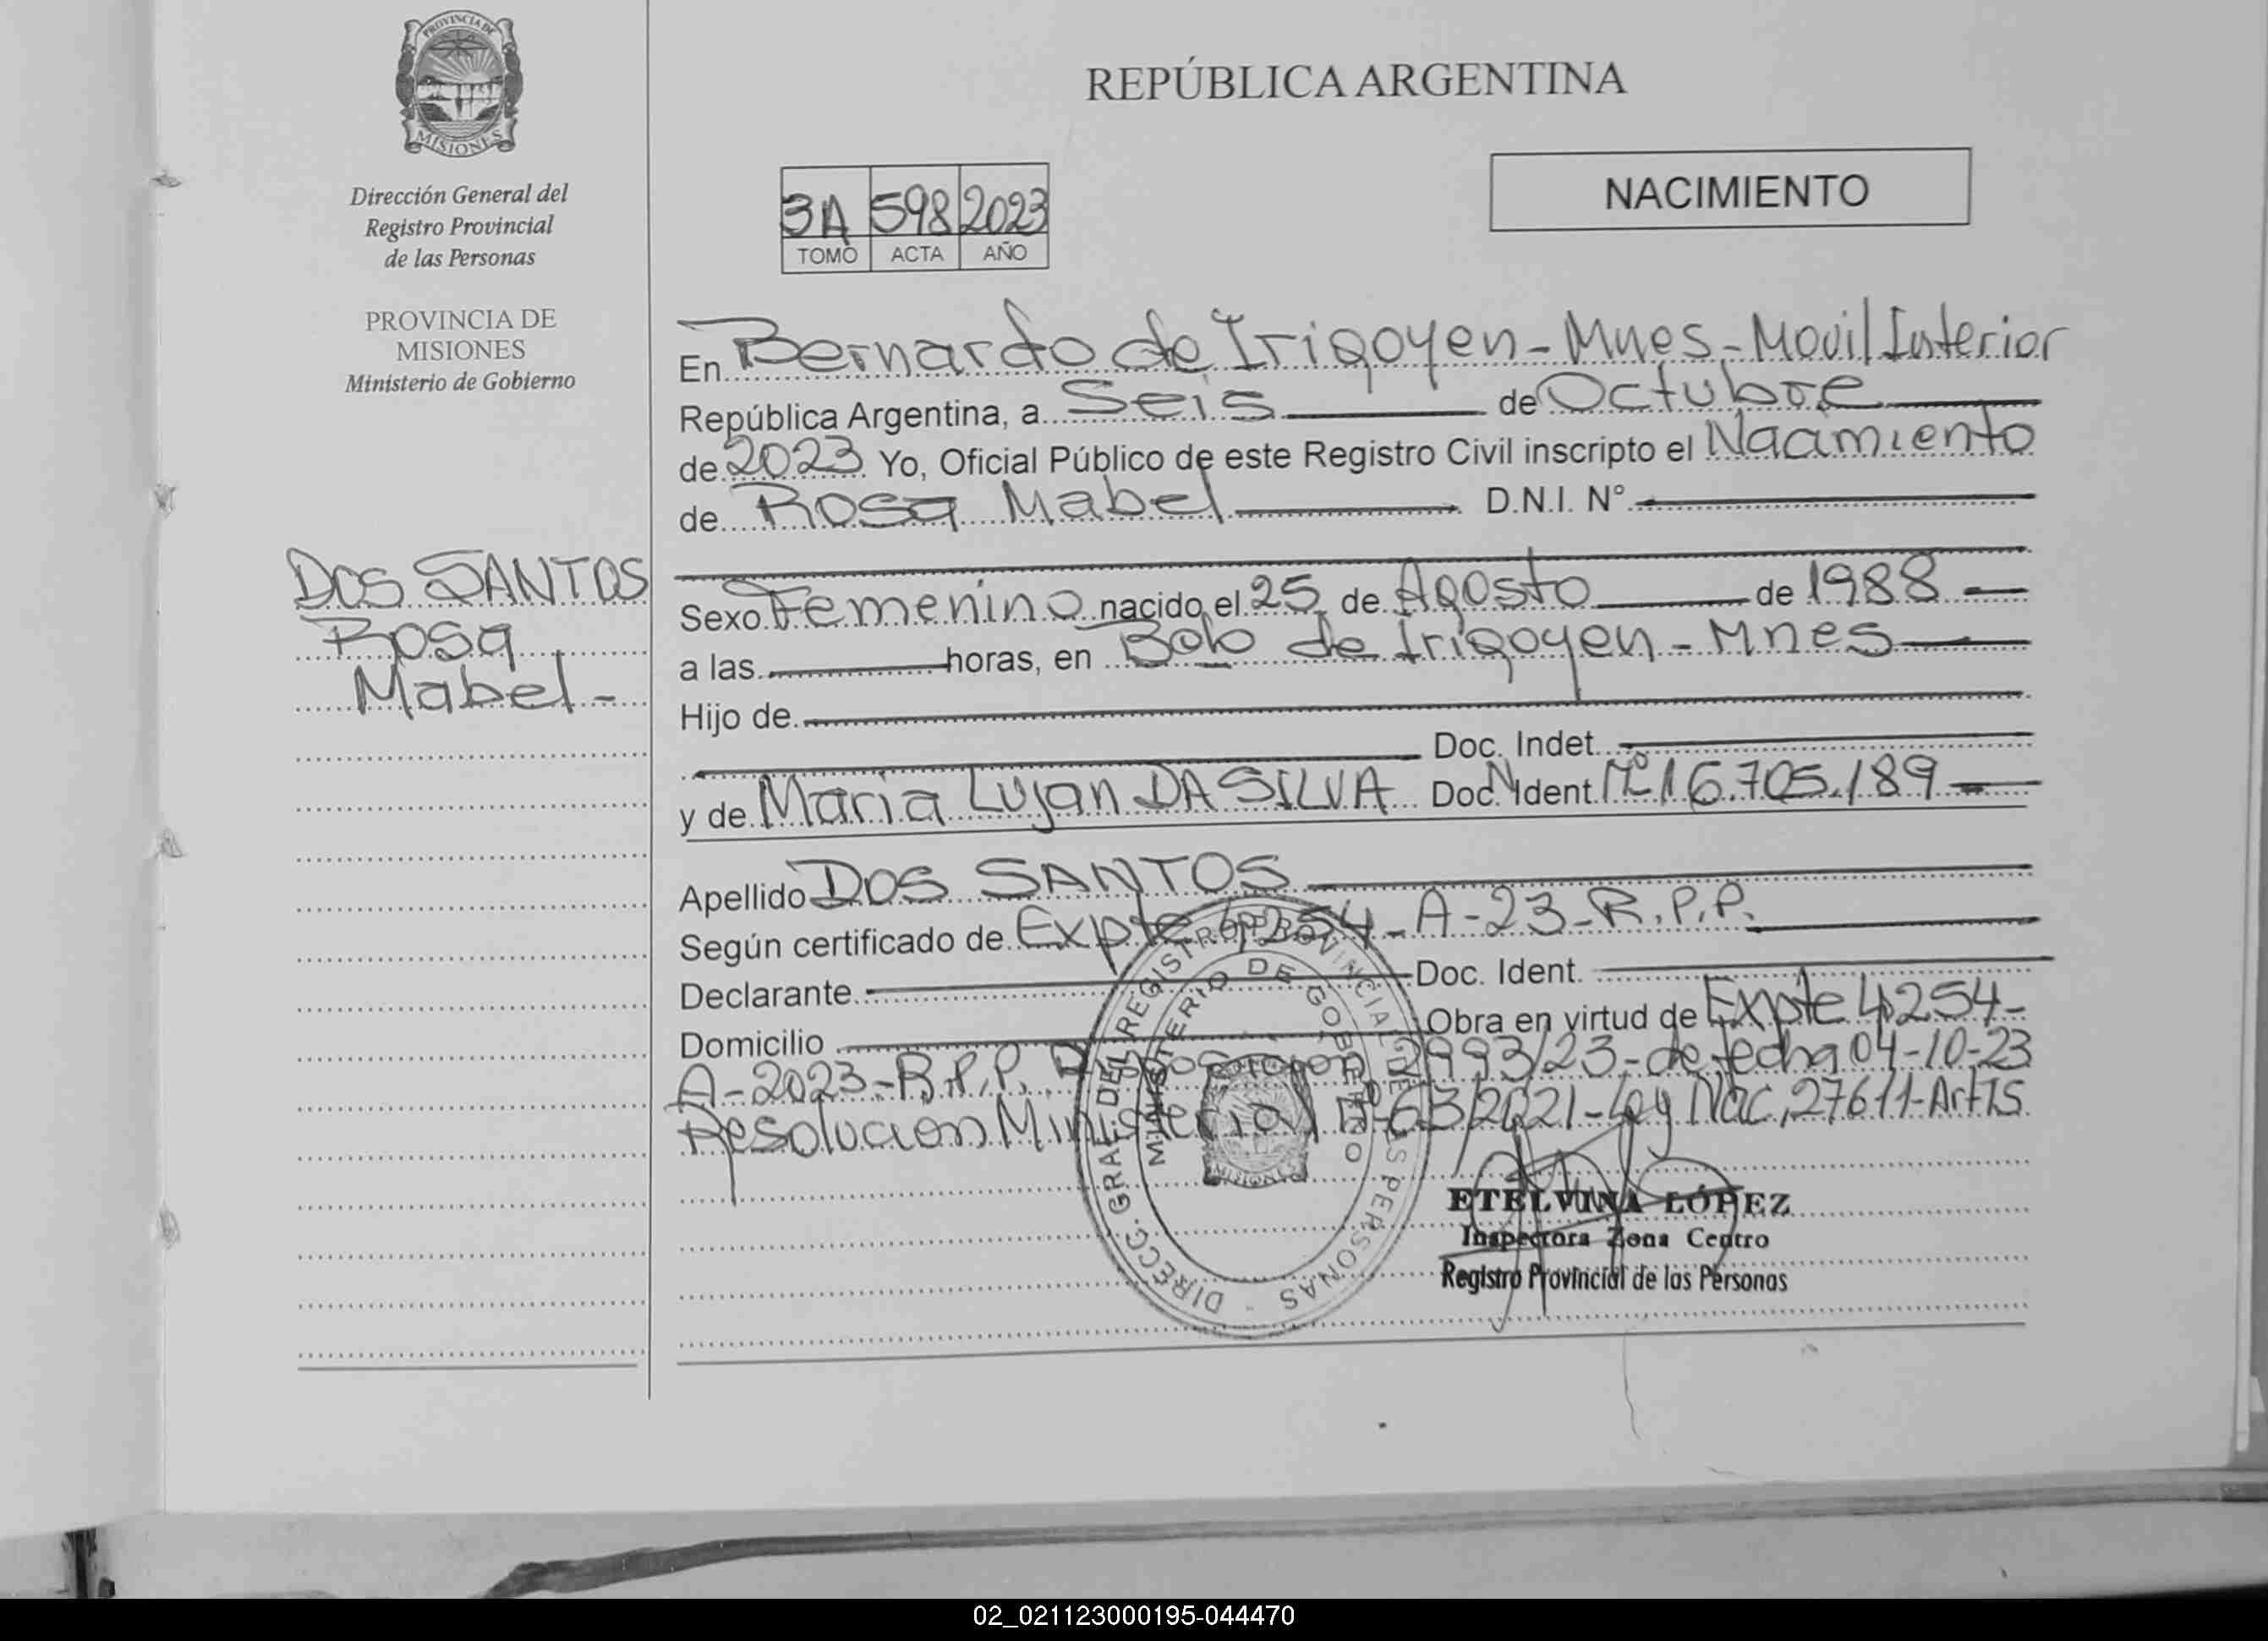 PROVINCIA DE
MISIONES
Dirección General del
Registro Provincial
de las Personas
PROVINCIA DE
MISIONES
Ministerio de Gobierno
DOS SANTOS
Rosa
Mabel -
REPÚBLICA ARGENTINA
NACIMIENTO
3A 598 2023
TOMO ACTA AÑO
En Bernardo de Irigoyen - Mnes - Movil Interior
República Argentina, a Seis de Octubre
de 2023 Yo, Oficial Público de este Registro Civil inscripto el Nacimiento
de Rosa Mabel D.N.I. N°
Sexo Femenino nacido el 25 de Agosto de 1988
a las horas, en Bdo de Irigoyen - Mnes
Hijo de
Doc. Indet.
y de Maria Lujan DA SILVA Doc. Ident. N° 16.705.189
Apellido DOS SANTOS
Según certificado de Expte 4254-A-23-R.P.P.
Declarante Doc. Ident.
Domicilio Obra en virtud de Expte 4254-
A-2023-R.P.P. Disposicion 2993/23-de fecha 04-10-23
Resolucion Ministerial N° 63/2021-Ley Nac. 27611-Art 15
DIRECC. GRAL. DEL REGISTRO PROVINCIAL DE LAS PERSONAS
MINISTERIO DE GOBIERNO
MISIONES
ETELVINA LÓPEZ
Inspectora Zona Centro
Registro Provincial de las Personas
02_021123000195-044470